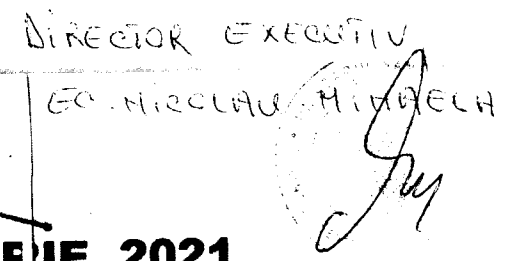 DIRECTOR EXECUTIV
EC. NICOLAU MIHAELA
RIE 2021